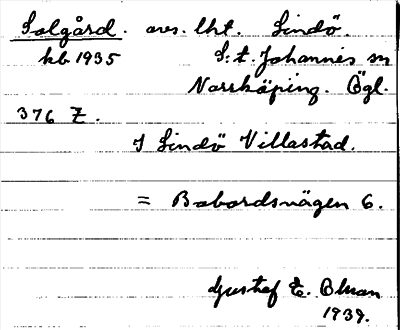 Solgård. avs. lht. Lindö.
kb 1935 S:t. Johannis sn
Norrköping. Ögl.
376 Z.
I Lindö Villastad.
= Babordsvägen 6.
Gustaf E. Blman
1939.